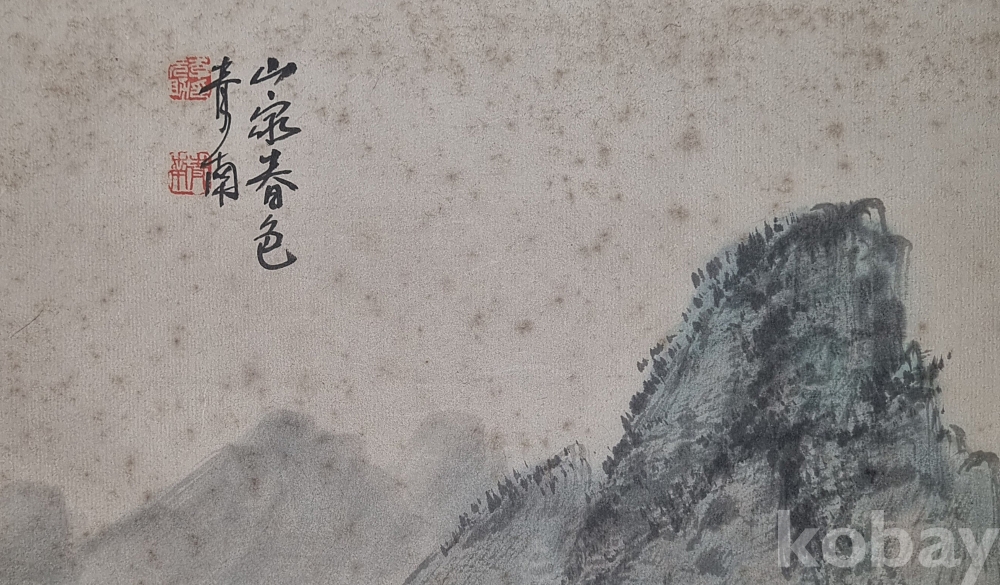 山家春色
青南
kobay